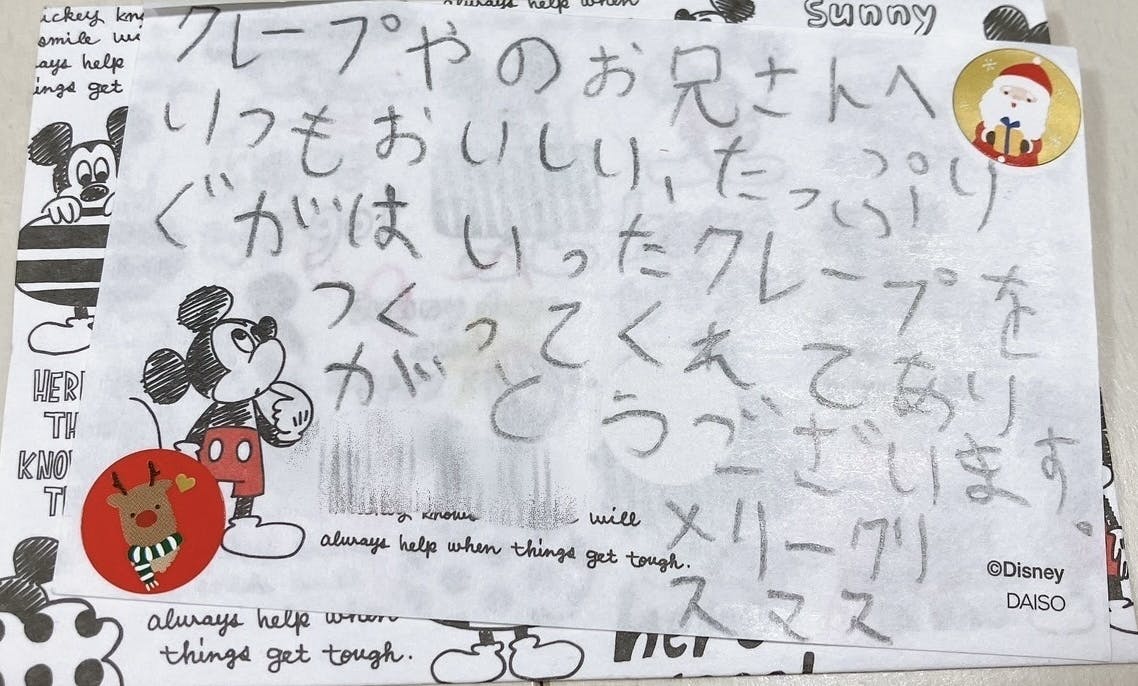 ickey kn
smile wi
ays help
ings get
always help when
sunny
クレープやのお兄さんへ
いつもおいしい、たっぷり
ぐがはいったクレープを
つくってくれてあり
がとうございます。
メリークリ
スマス
HER
TH
KNO
T
knows will
always help when things get tough.
©Disney
DAISO
always help when
things get tough.